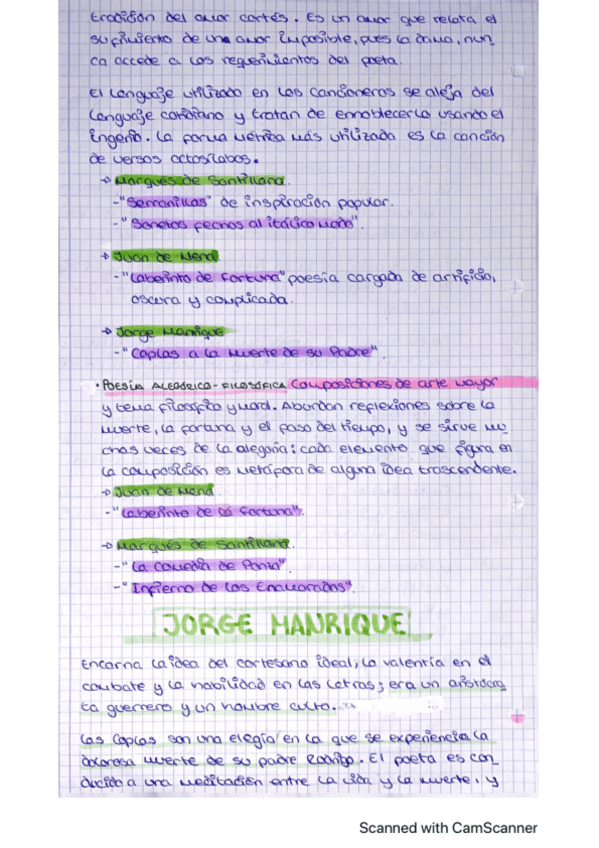 tradición del amor cortés. Es un amor que relata el
sufrimiento de un amor imposible, pues la dama, nun
ca accede a los requerimientos del poeta.
El lenguaje utilizado en los cancioneros se aleja del
lenguaje cotidiano y tratan de ennoblecerlo usando el
ingenio. La forma métrica más utilizada es la canción
de versos octosílabos.
→ Marqués de Santillana.
-"Serranillas" de inspiración popular.
-"Sonetos fechos al itálico modo".
→ Juan de Mena
-"Laberinto de Fortuna" poesía cargada de artificio,
oscura y complicada.
→ Jorge Manrique
-"Coplas a la muerte de su Padre".
· POESÍA ALEGÓRICO-FILOSÓFICA Composiciones de arte mayor
y tema filosófico y moral. Abordan reflexiones sobre la
muerte, la fortuna y el paso del tiempo, y se sirve mu
chas veces de la alegoría: cada elemento que figura en
la composición es metáfora de alguna idea trascendente.
→ Juan de Mena
-"Laberinto de la Fortuna".
→ Marqués de Santillana.
-"La comedia de Ponza"
-"Infierno de los Enamorados".
JORGE MANRIQUE
Encarna la idea del cortesano ideal, la valentía en el
combate y la habilidad en las letras; era un aristócra
ta guerrero y un hombre culto.
Las Coplas son una elegía en la que se experiencia la
dolorosa muerte de su padre Rodrigo. El poeta es con
ducido a una meditación entre la vida y la muerte, y
Scanned with CamScanner